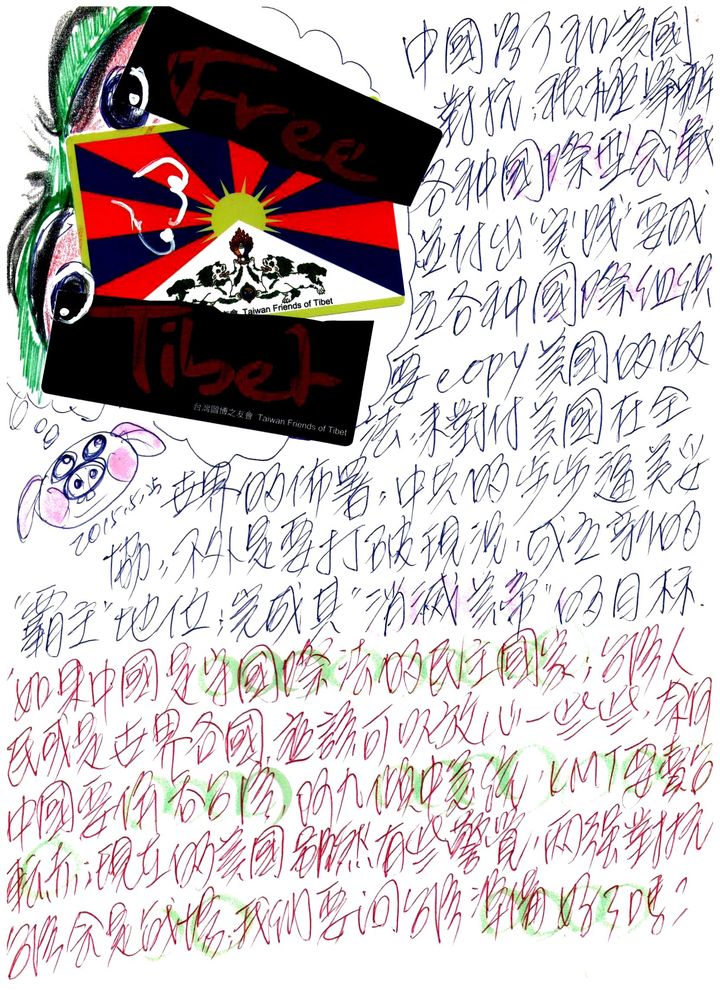 Free
Taiwan Friends of Tibet
Tibet
台灣圖博之友會 Taiwan Friends of Tibet
中國為了和美國
對抗，積極舉辦
各種國際型會議
並付出"實踐"要成
立各种國際組織
要copy美國的做
法，來對付美國在全
2015.5.25
世界的佈署，中共的步步逼美妥
協，不外是要打破現況，成立新的
"霸主"地位，完成其"消滅美帝"的目标.
如果中國是守國際法的民主國家，台灣人
民或是世界各國，應該可以放心一些些，奈何
中國要併吞台灣 的九 KMT要賣台
現在的美國 然有些警覺，兩強對抗
台灣會是战場，我們要问台灣準備好了嗎？